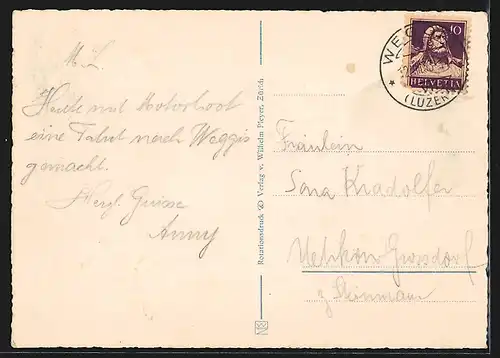 M. L.
Heute mit Motorboot
eine Fahrt nach Weggis
gemacht.
Herzl. Grüsse
Anny
Rotationsdruck & Verlag v. Wilhelm Pleyer, Zürich
10
HELVETIA
WEGGIS
(LUZERN)
Fräulein
Kradolfer
Uetikon